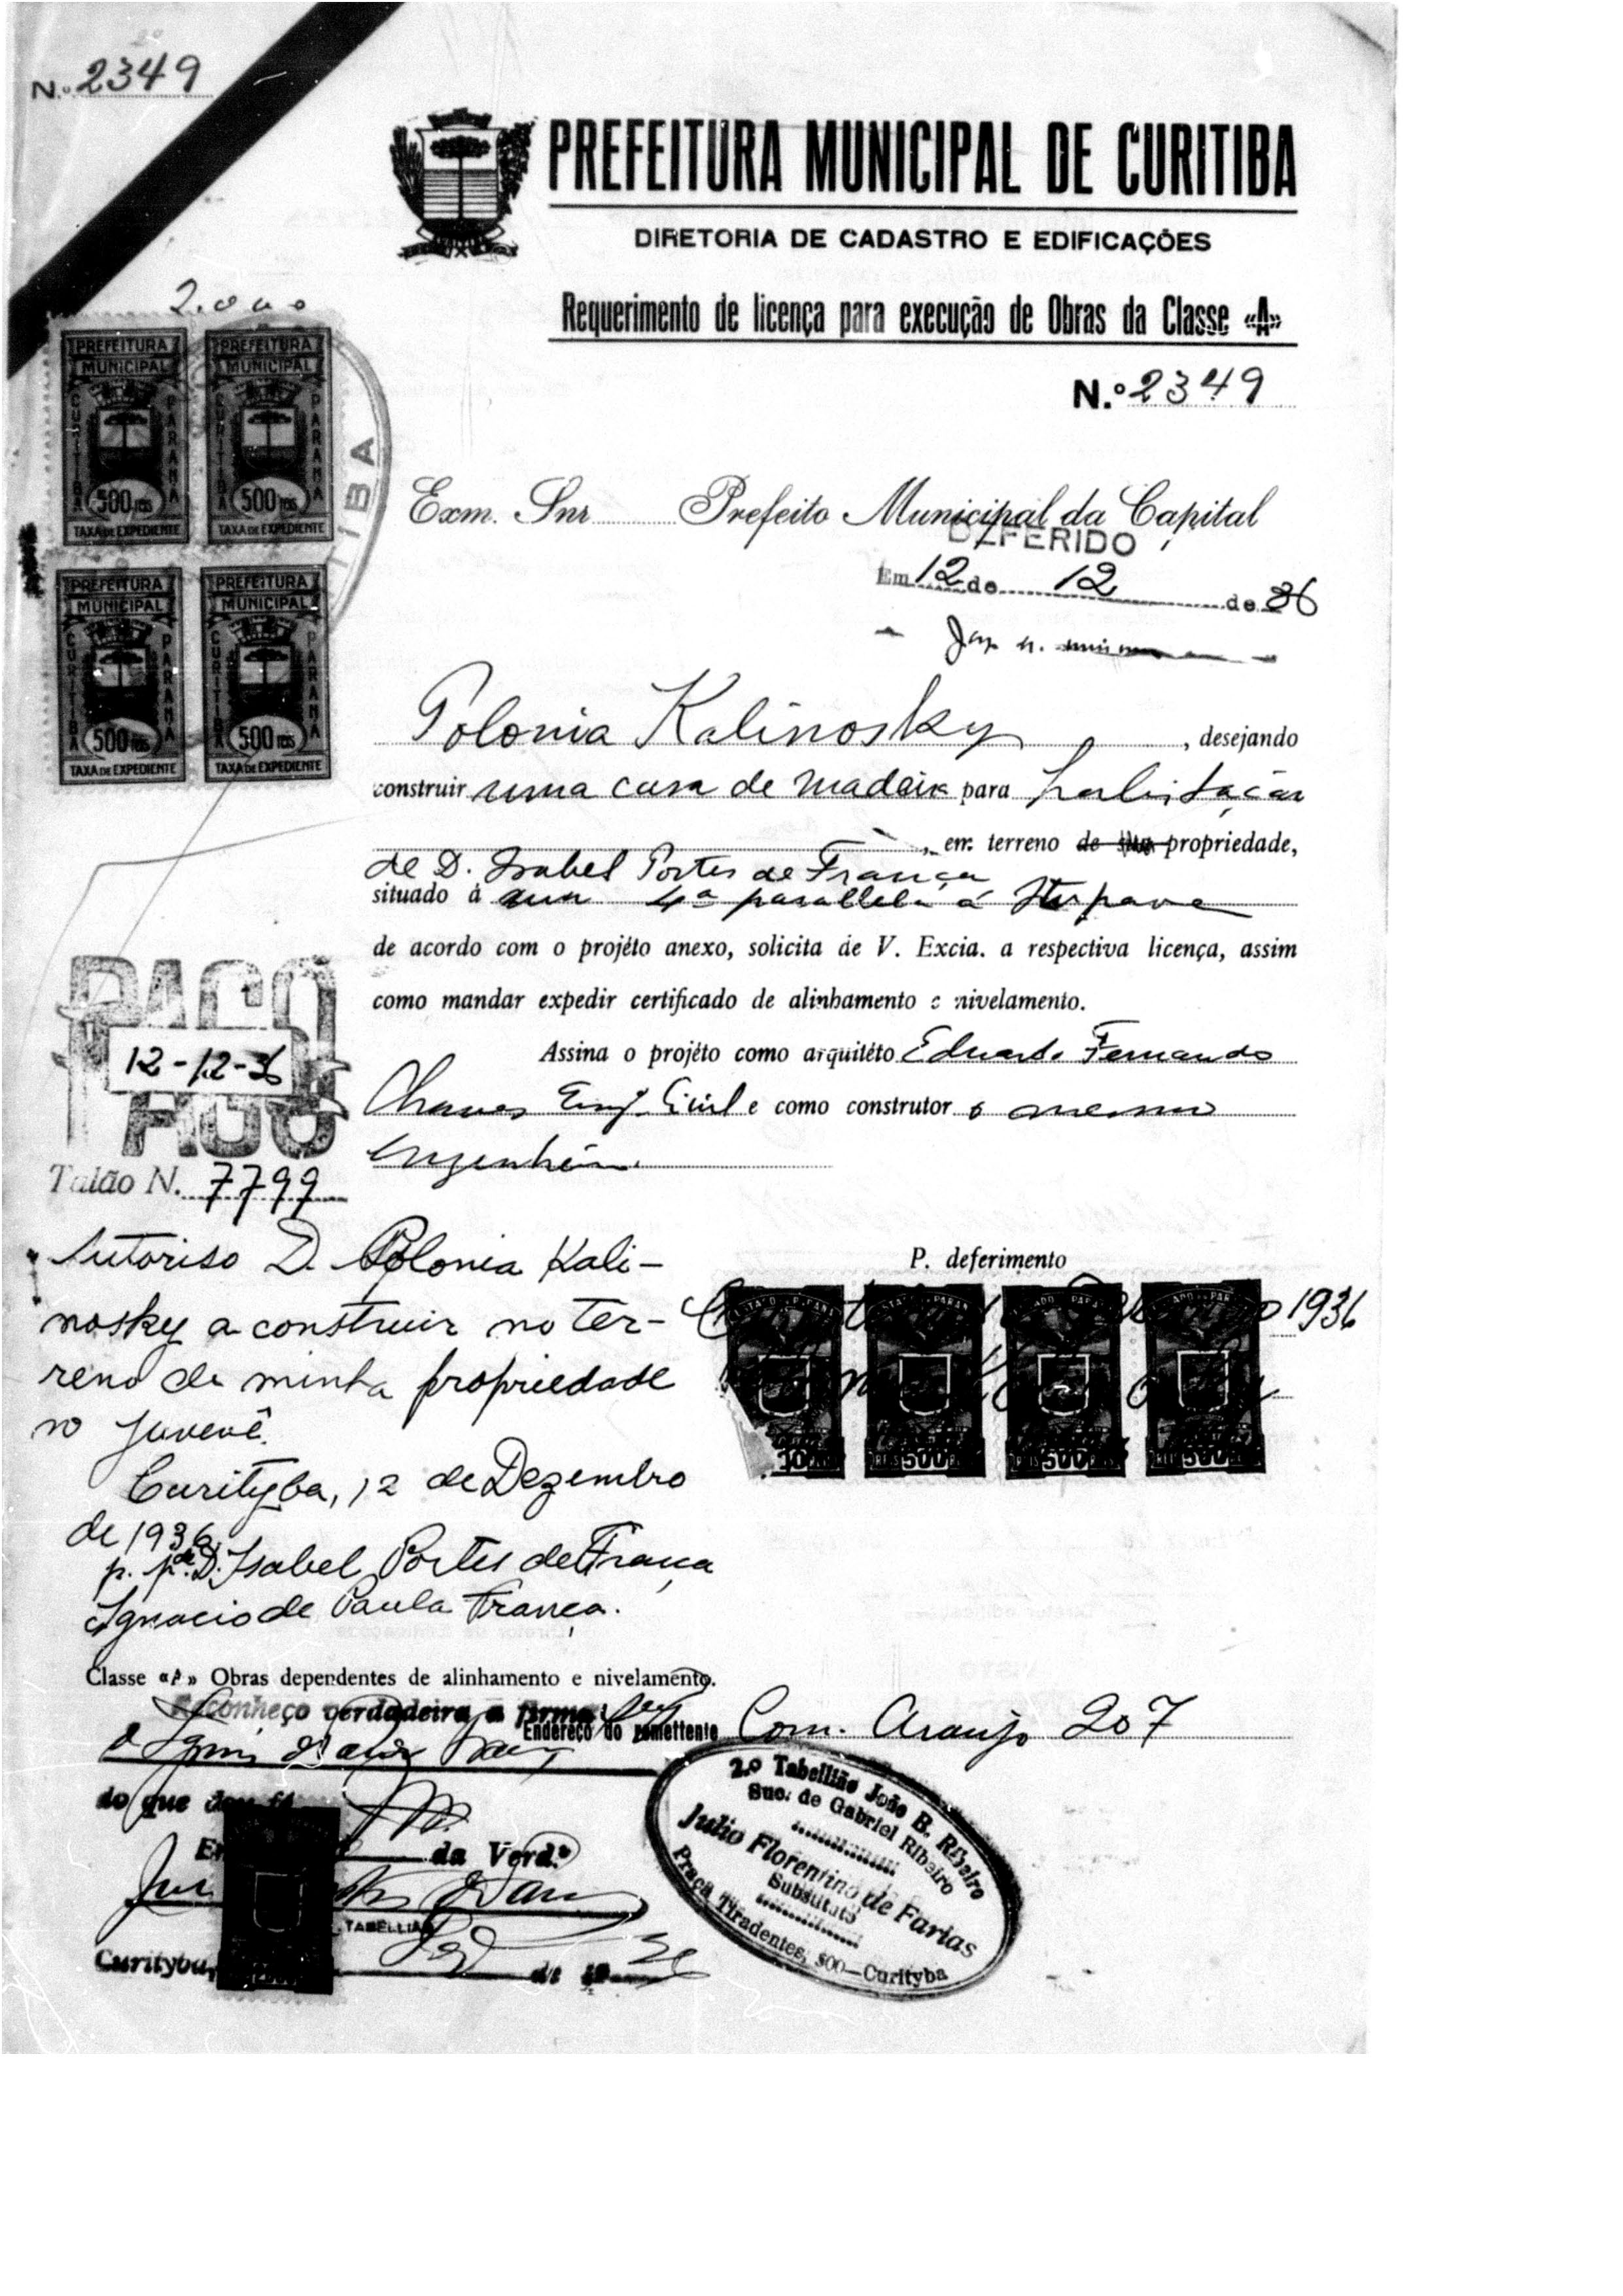 N.º 2349
PREFEITURA MUNICIPAL DE CURITIBA
DIRETORIA DE CADASTRO E EDIFICAÇÕES
Requerimento de licença para execução de Obras da Classe «A»
N.º 2349
2.000
PREFEITURA MUNICIPAL CURITIBA PARANÁ 500 REIS TAXA DE EXPEDIENTE
PREFEITURA MUNICIPAL CURITIBA PARANÁ 500 REIS TAXA DE EXPEDIENTE
PREFEITURA MUNICIPAL CURITIBA PARANÁ 500 REIS TAXA DE EXPEDIENTE
PREFEITURA MUNICIPAL CURITIBA PARANÁ 500 REIS TAXA DE EXPEDIENTE
Exm. Snr Prefeito Municipal da Capital
DEFERIDO
Em 12 de 12 de 36
Polonia Kalinosky, desejando
construir uma casa de madeira para habitação
, em terreno de sua propriedade,
de D. Isabel Portes de França
situado á rua 4ª parallela á Itupava
de acordo com o projéto anexo, solicita de V. Excia. a respectiva licença, assim
como mandar expedir certificado de alinhamento e nivelamento.
Assina o projéto como arquitéto Eduardo Fernando
Chaves Engº Civil e como construtor o mesmo
Engenheiro.
PAGO
12-12-36
Talão N. 7799
P. deferimento
1936
Autoriso D. Polonia Kali-
nosky a construir no ter-
reno de minha propriedade
no Juvevê.
Curityba, 12 de Dezembro
de 1936.
p. p. de D. Isabel Portes de França
Ignacio de Paula França.
Classe «A» Obras dependentes de alinhamento e nivelamento.
Reconheço verdadeira a firma
Endereço do remettente Com. Araujo 207
do que dou fé
da Verd.e
TABELLIÃO
Curityba, de 19 36
2.º Tabellião João B. Ribeiro
Suc. de Gabriel Ribeiro
Julio Florentino de Farias
Substituto
Praça Tiradentes, 500—Curityba